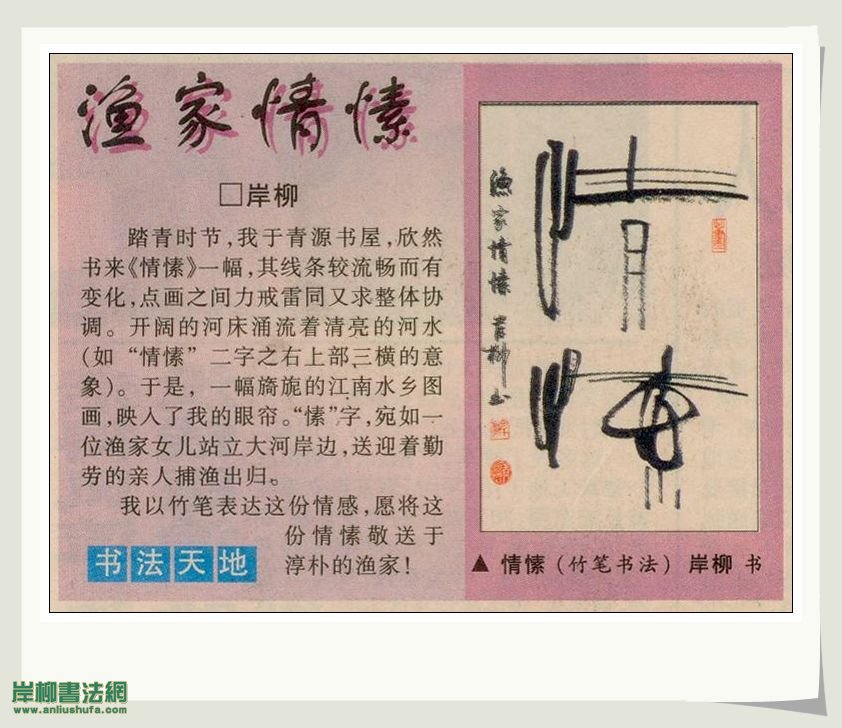 渔家情愫
□岸柳
踏青时节,我于青源书屋,欣然
书来《情愫》一幅,其线条较流畅而有
变化,点画之间力戒雷同又求整体协
调。开阔的河床涌流着清亮的河水
(如“情愫”二字之右上部三横的意
象)。于是,一幅旖旎的江南水乡图
画,映入了我的眼帘。“愫”字,宛如一
位渔家女儿站立大河岸边,送迎着勤
劳的亲人捕渔出归。
我以竹笔表达这份情感,愿将这
份情愫敬送于
淳朴的渔家!
书法天地
情愫
渔家情愫 岸柳书
▲ 情愫(竹笔书法) 岸柳 书
岸柳書法網
www.anliushufa.com